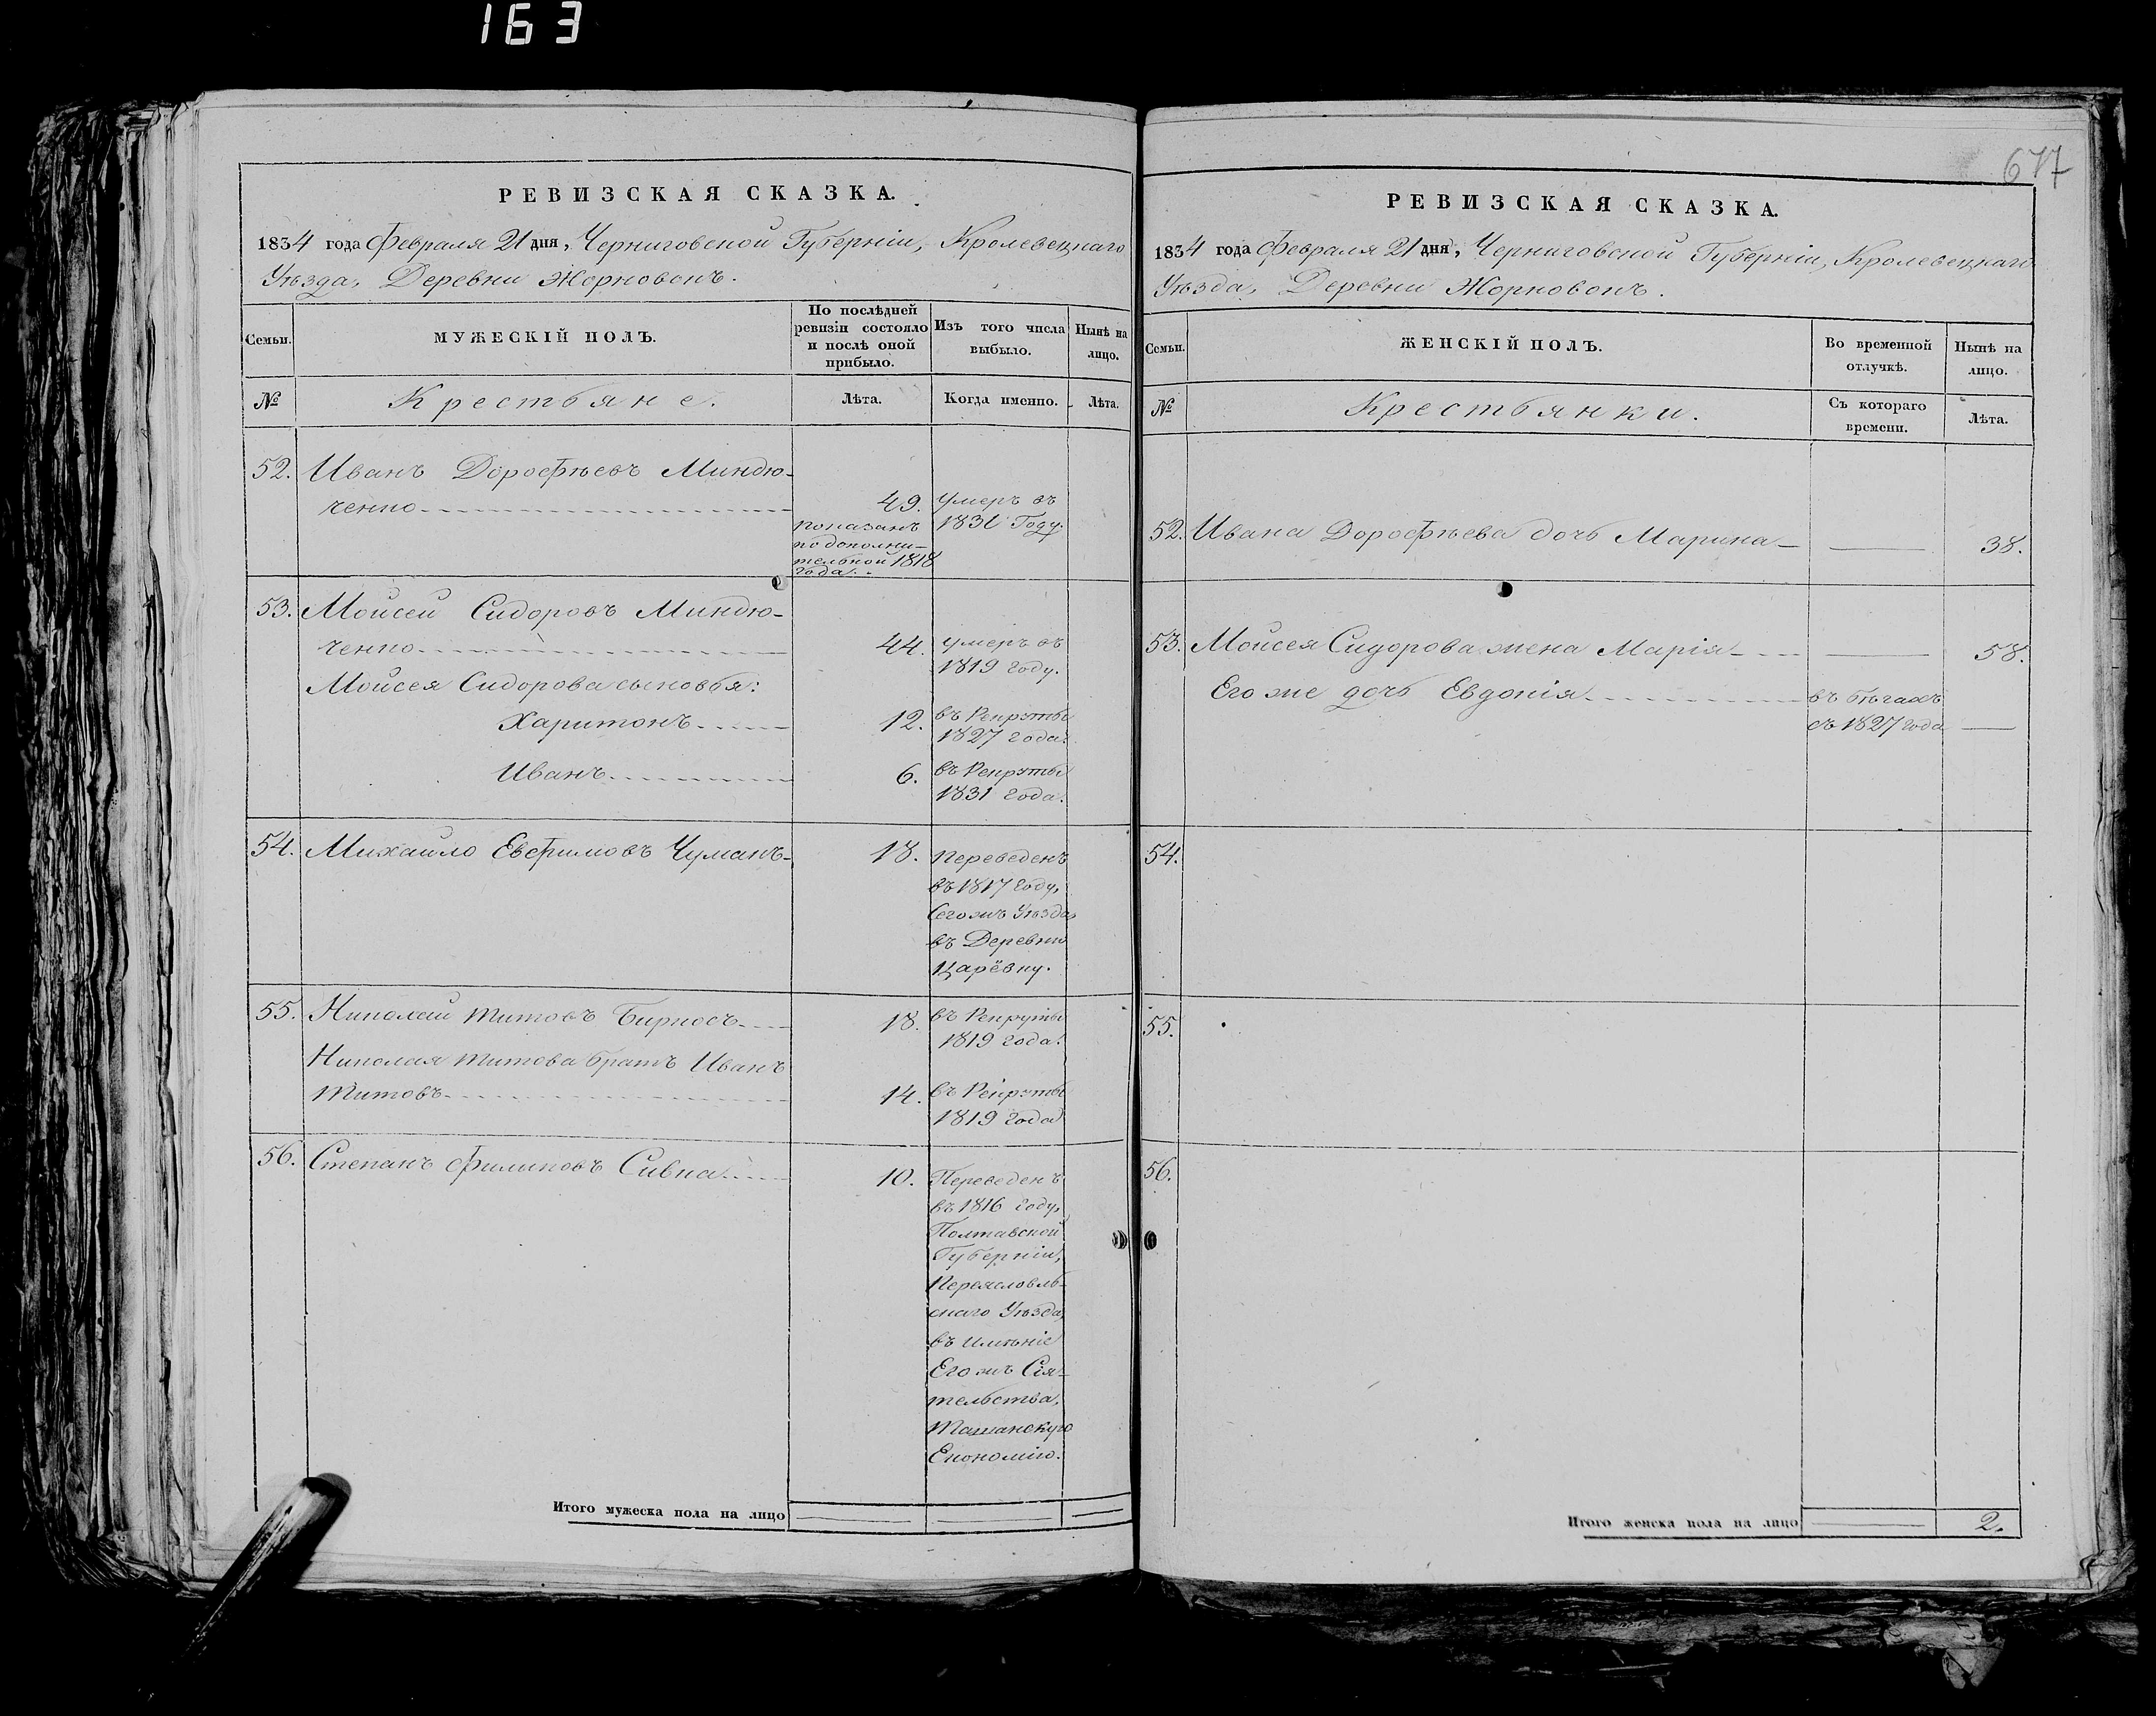 163
РЕВИЗСКАЯ СКАЗКА.
1834 года Февраля 21 дня, Черниговской Губерніи, Кролевецкаго
Уѣзда, Деревни Жорновокъ.
Семьи.
МУЖЕСКІЙ ПОЛЪ.
По послѣдней
ревизіи состояло
и послѣ оной
прибыло.
Изъ того числа
выбыло.
Нынѣ на
лицо.
№
Крестьяне.
Лѣта.
Когда именно.
Лѣта.
52. Иванъ Дорофѣевъ Миндю-
ченко 49. Умеръ въ
показанъ 1831 Году.
по дополни-
тельной 1818
года.
53. Моисей Сидоровъ Миндю-
ченко 44. умеръ въ
1819 году.
Моисея Сидорова сыновья:
Харитонъ 12. въ Рекруты
1827 года.
Иванъ 6. въ Рекруты
1831 года.
54. Михайло Евфимовъ Чумакъ 18. Переведенъ
въ 1817 году,
Сегожъ Уѣзда,
въ Деревню
Царёвку.
55. Николай Титовъ Бирносъ 18. въ Рекруты
1819 года.
Николая Титова братъ Иванъ
Титовъ 14. въ Рекруты
1819 года
56. Степанъ Филиповъ Сивка 10. Переведенъ
въ 1816 году,
Полтавской
Губерніи,
Переясловль-
скаго Уѣзда,
въ имѣніе
Егожъ Сія-
тельства,
Ташанскую
Економію.
Итого мужеска пола на лицо
677
РЕВИЗСКАЯ СКАЗКА.
1834 года Февраля 21 дня, Черниговской Губерніи, Кролевецкаго
Уѣзда, Деревни Жорновокъ.
Семьи.
ЖЕНСКІЙ ПОЛЪ.
Во временной
отлучкѣ.
Нынѣ на
лицо.
№
Крестьянки.
Съ котораго
времени.
Лѣта.
52. Ивана Дорофѣева дочь Марина 38.
53. Моисея Сидорова жена Марія 58.
Его же дочь Евдокія въ бѣгахъ
съ 1827 года
54.
55.
56.
Итого женска пола на лицо 2.